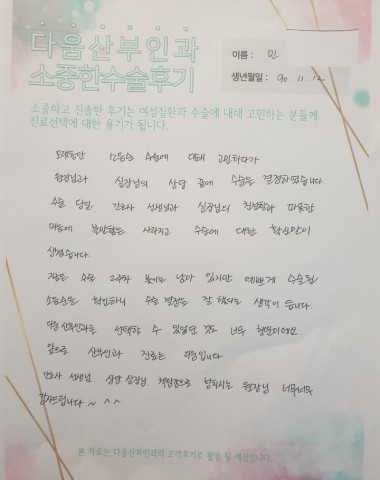 다움산부인과
소중한수술후기
이름 : 민
생년월일 : 90. 11. 12
소중하고 진솔한 후기는 여성질환과 수술에 대해 고민하는 분들께
진료선택에 대한 용기가 됩니다.
오랫동안 수술에 대해 고민하다가
원장님과 실장님의 상담 끝에 수술을 결정하였습니다.
수술 당일 간호사 선생님과 실장님의 친절함과 따뜻함
마음에 불안함은 사라지고 수술에 대한 확신만이
생겼습니다.
지금은 수술 2주차 붓기는 남아 있지만 예쁘게 수술된
소음순을 확인하니 수술 결정을 잘 했다는 생각이 듭니다.
다움 산부인과를 선택할 수 있었던 것도 너무 행운이에요.
앞으로 산부인과 진료는 다움입니다
간호사 선생님, 상담 실장님, 책임감으로 원장님 너무너무
감사드립니다 ~ ^^
본 자료는 다움산부인과의 고객후기로 활용 될 예정입니다.